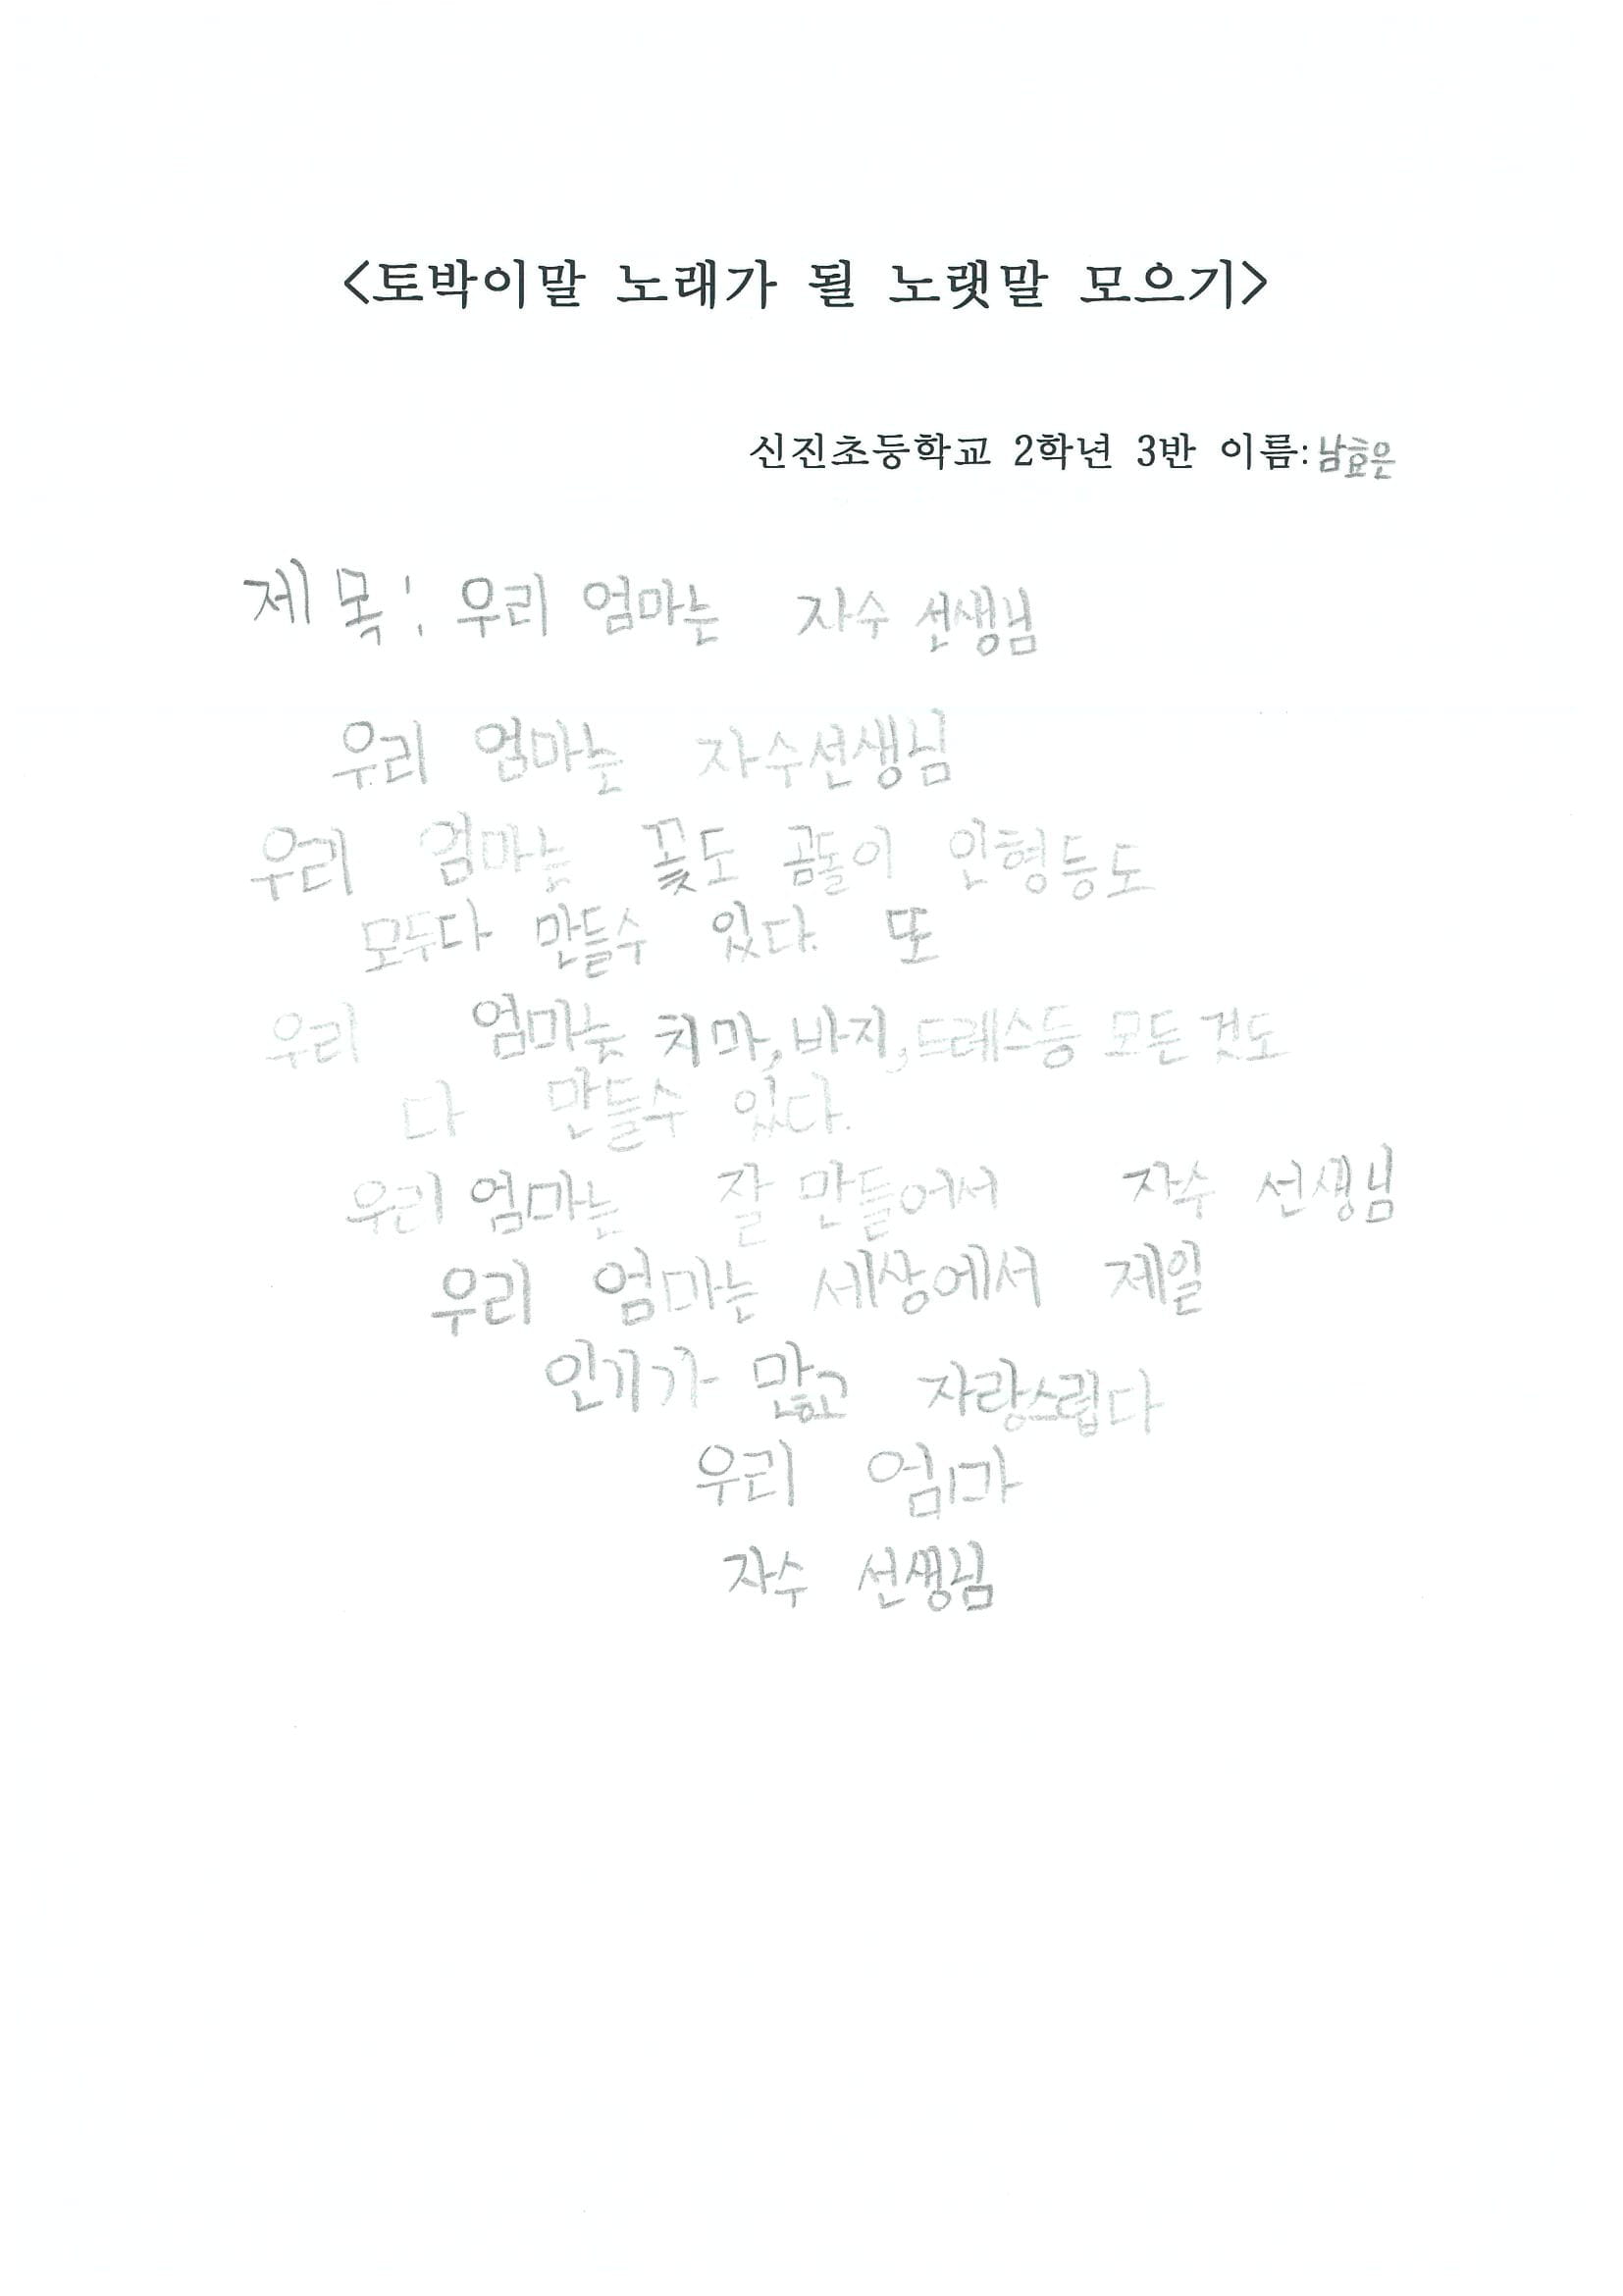 <토박이말 노래가 될 노랫말 모으기>
신진초등학교 2학년 3반 이름:남효은
제목: 우리 엄마는 자수 선생님
우리 엄마는 자수선생님
우리 엄마는 꽃도 곰돌이 인형등도
모두다 만들수 있다. 또
우리 엄마는 치마, 바지, 드레스등 모든 것도
다 만들수 있다.
우리 엄마는 잘 만들어서 자수 선생님
우리 엄마는 세상에서 제일
인기가 많고 자랑스럽다
우리 엄마
자수 선생님